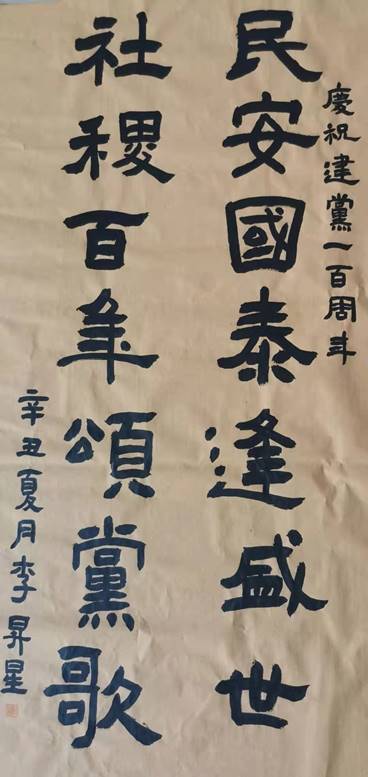 慶祝建黨一百周年
民安國泰逢盛世
社稷百年頌黨歌
辛丑夏月李昇星